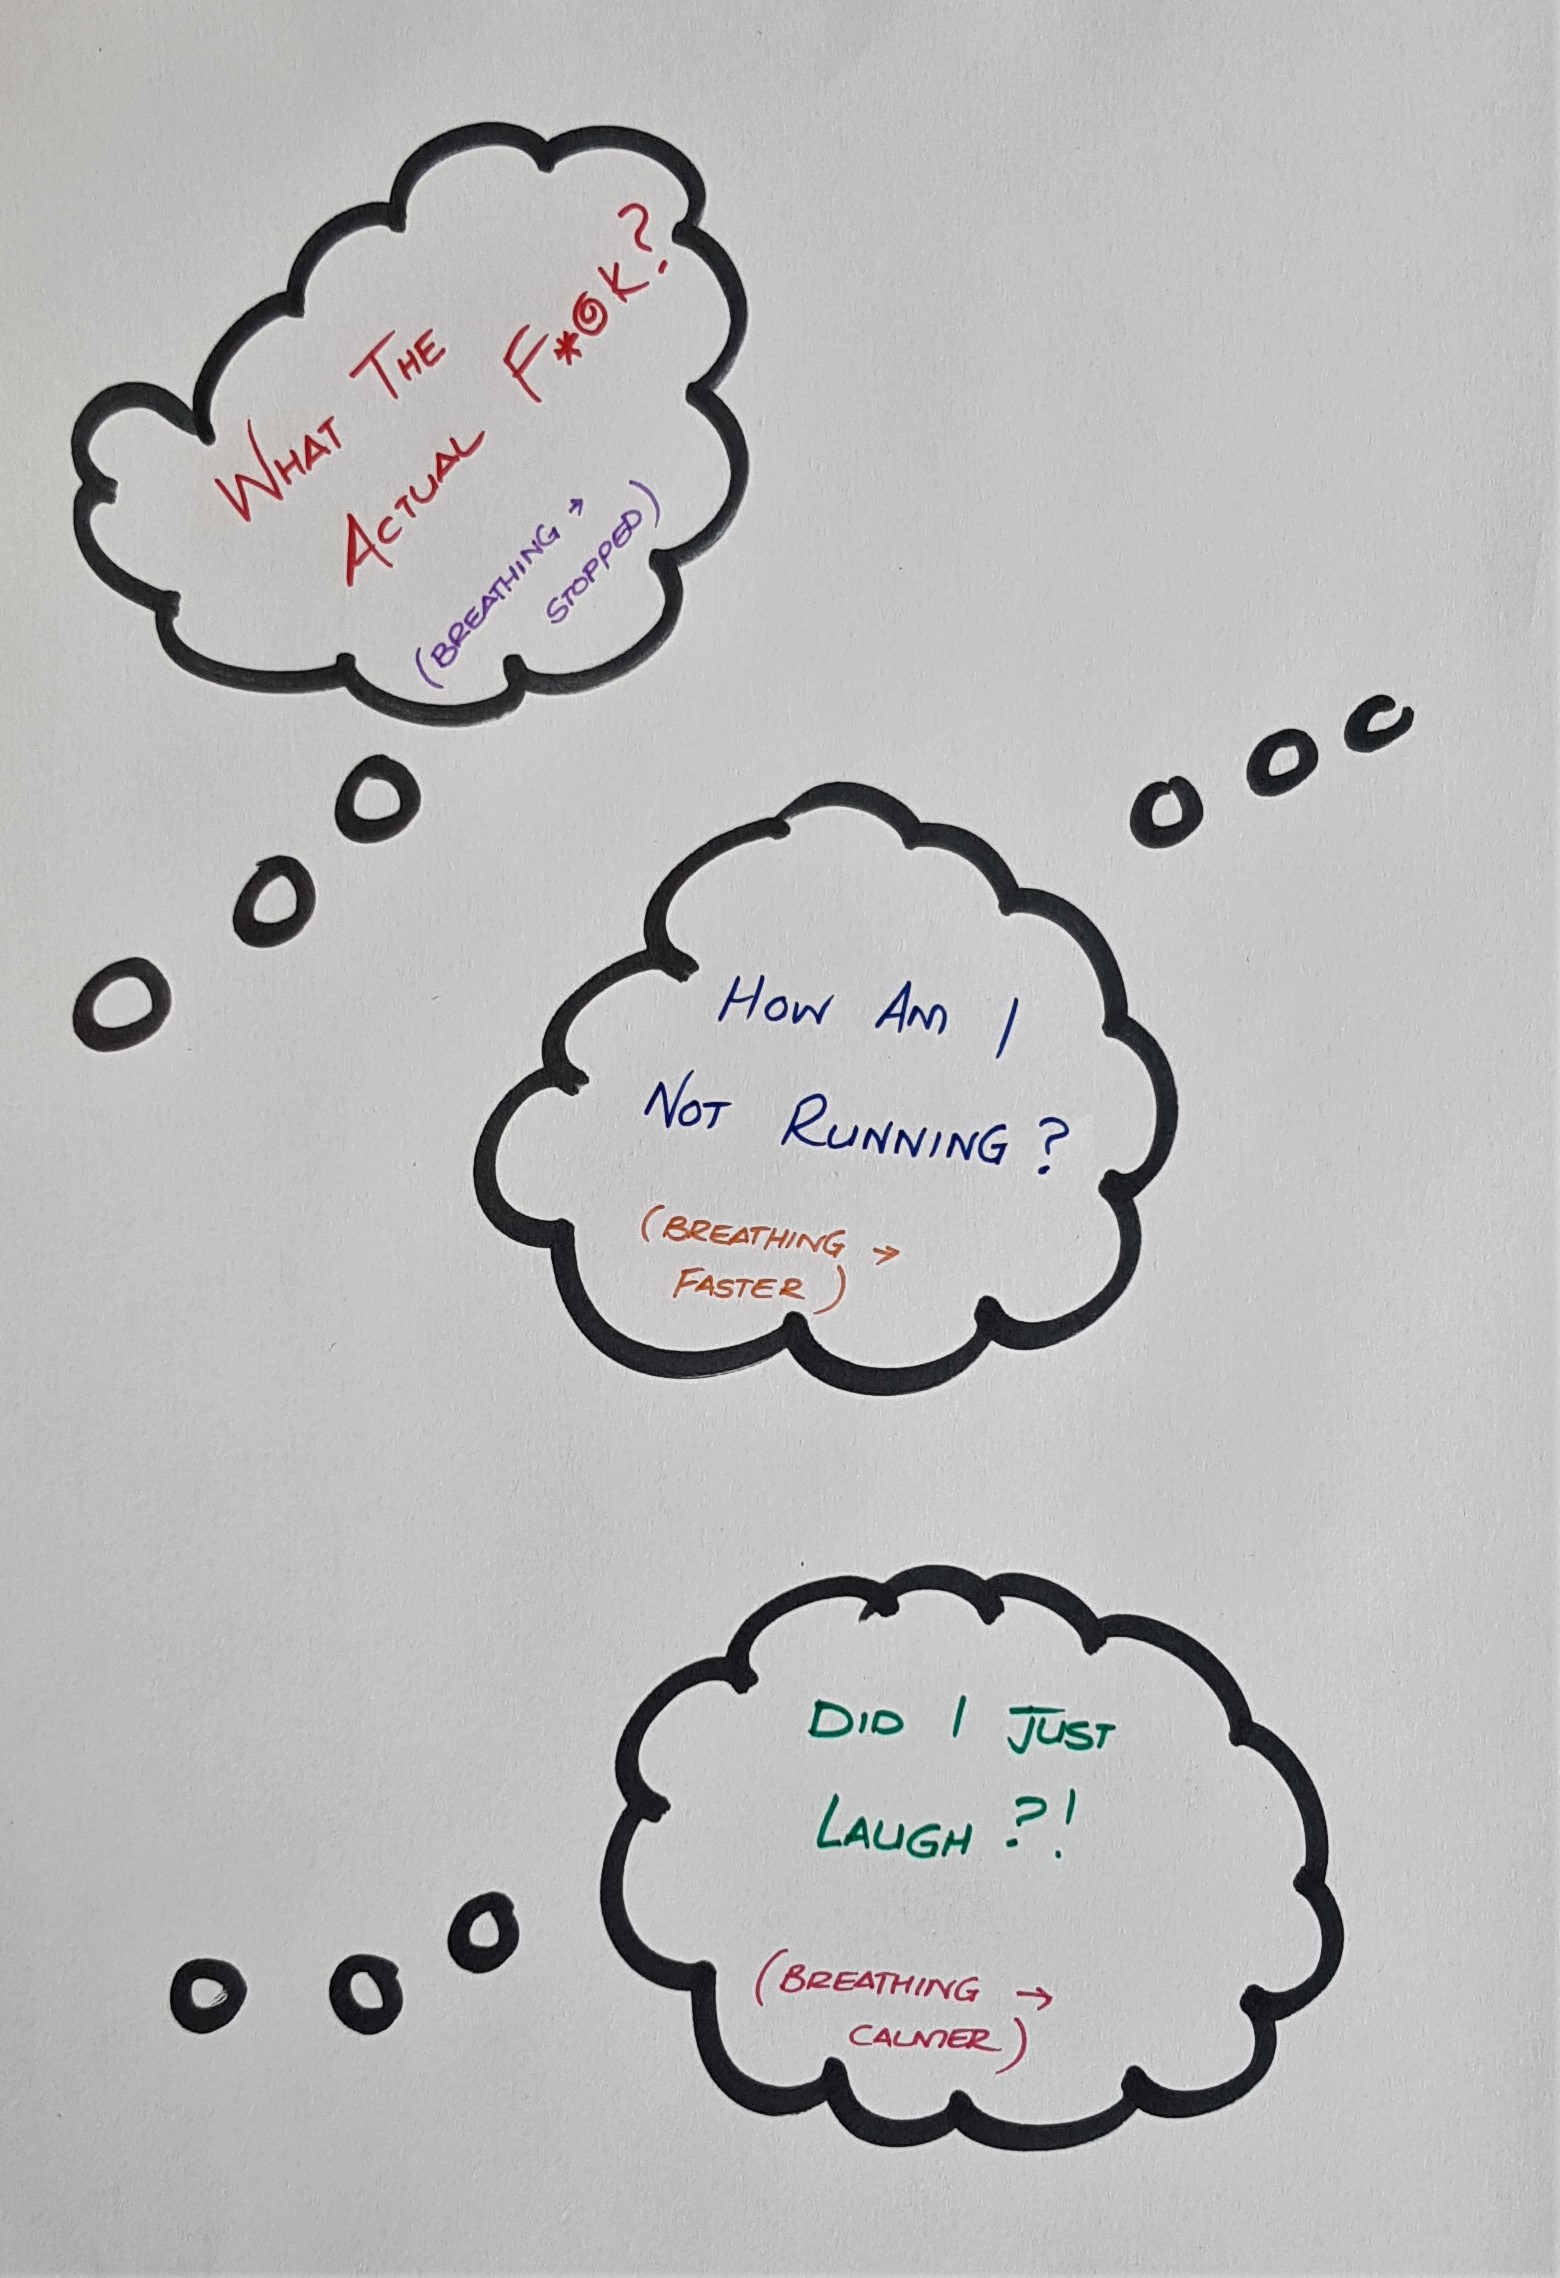 WHAT THE
ACTUAL F*@K?
(BREATHING →
STOPPED)
HOW AM I
NOT RUNNING?
(BREATHING →
FASTER)
DID I JUST
LAUGH?!
(BREATHING →
CALMER)